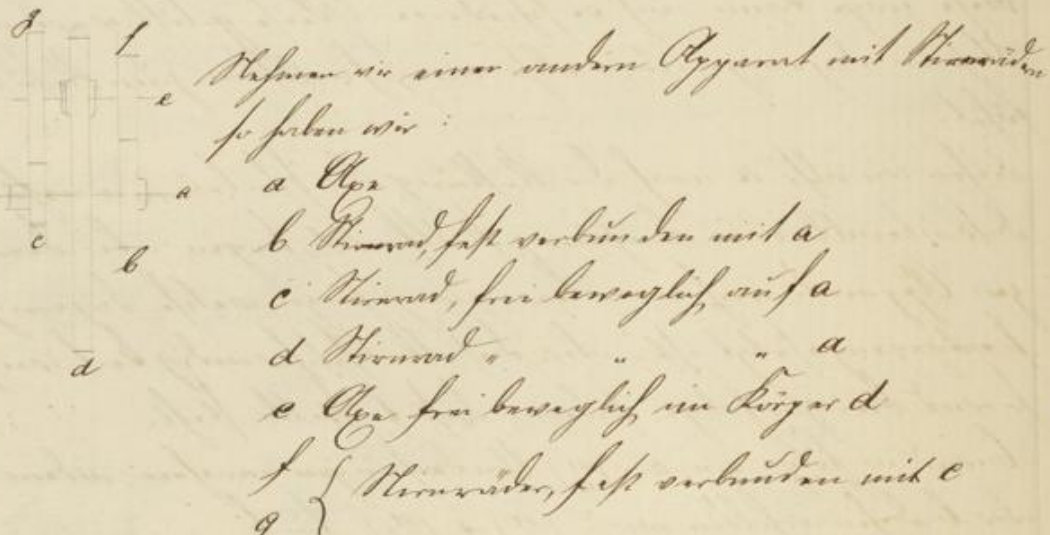 g
f
Nehmen wir einen andern Apparat mit Stirnrädern
e
so haben wir :
a
a Axe
c
b
b Stirnrad, fest verbunden mit a
c Stirnrad, frei beweglich auf a
d
d Stirnrad " " " a
e Axe frei beweglich im Körper d
f
g { Stirnräder, fest verbunden mit e